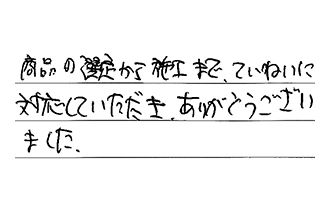 商品の選定から施工まで、ていねいに
対応していただき、ありがとうござい
ました。